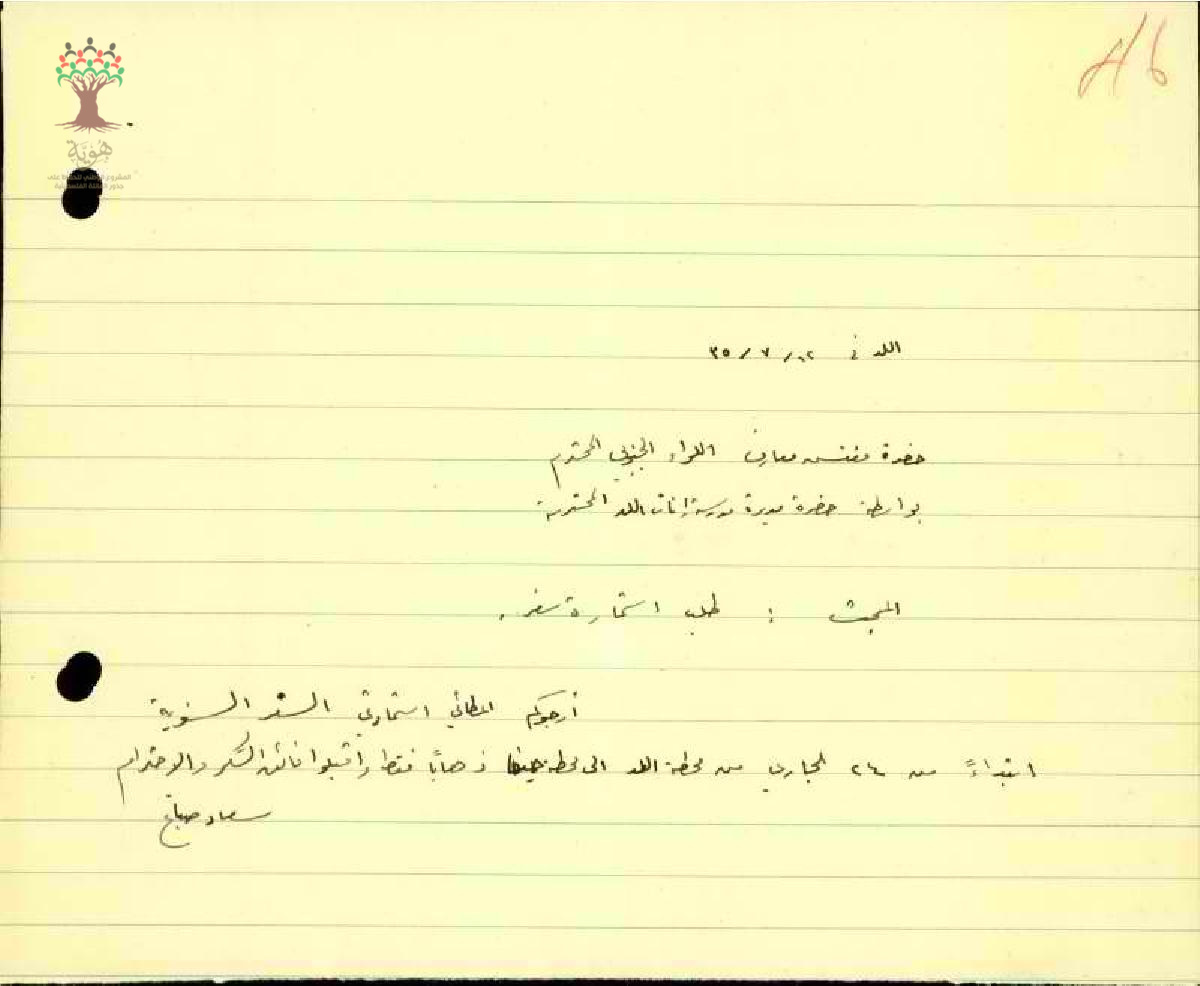 46
هوية
المشروع الوطني للحفاظ على
جذور العائلة الفلسطينية
اللد في ٣٥/٧/١٢
حضرة مفتش معارف اللواء الجنوبي المحترم
بواسطة حضرة مديرة مدرسة إناث اللد المحترمة
المبحث : طلب استمارة سفر.
أرجوكم اعطائي استمارتي السفر السنوية
ابتداءً من ٢٤ الجاري من محطة اللد الى محطة حيفا ذهاباً فقط واقبلوا فائق الشكر والاحترام
سعاد صباغ